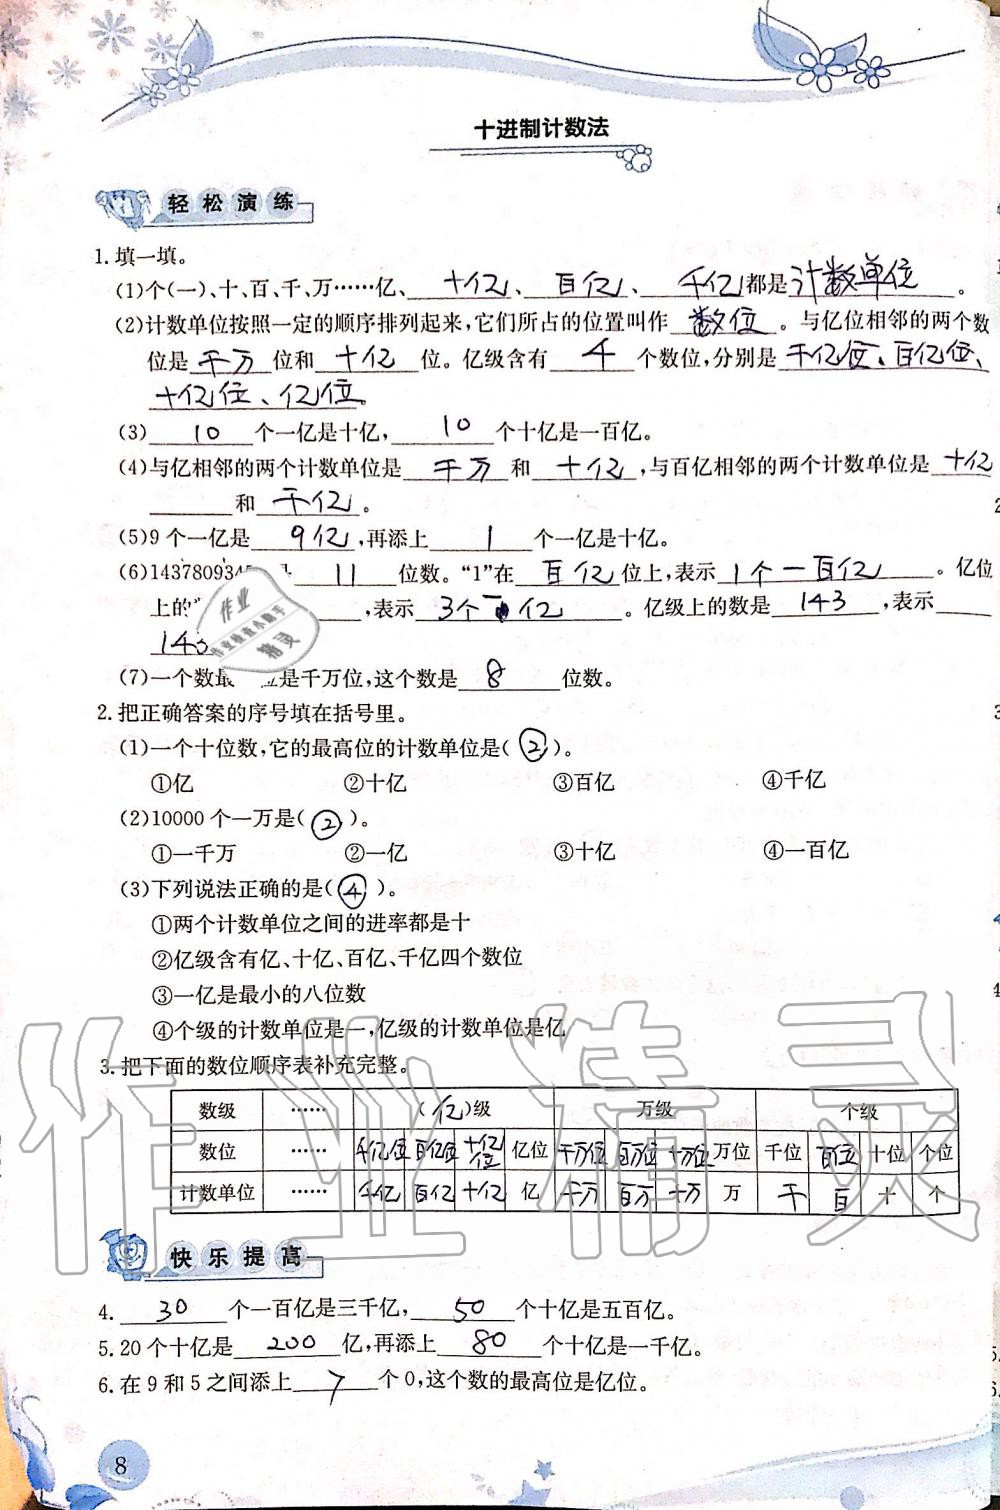 十进制计数法
轻松演练
1.填一填。
(1)个(一)、十、百、千、万……亿、十亿、百亿、千亿都是计数单位。
(2)计数单位按照一定的顺序排列起来,它们所占的位置叫作数位。与亿位相邻的两个数
位是千万位和十亿位。亿级含有4个数位,分别是千亿位、百亿位、
十亿位、亿位。
(3)10个一亿是十亿,10个十亿是一百亿。
(4)与亿相邻的两个计数单位是千万和十亿,与百亿相邻的两个计数单位是十亿
和千亿。
(5)9个一亿是9亿,再添上1个一亿是十亿。
(6)1437809345是11位数。“1”在百亿位上,表示1个一百亿。亿位
上的,表示3个亿。亿级上的数是143,表示
143
(7)一个数最位是千万位,这个数是8位数。
2.把正确答案的序号填在括号里。
(1)一个十位数,它的最高位的计数单位是(②)。
①亿 ②十亿 ③百亿 ④千亿
(2)10000个一万是(②)。
①一千万 ②一亿 ③十亿 ④一百亿
(3)下列说法正确的是(④)。
①两个计数单位之间的进率都是十
②亿级含有亿、十亿、百亿、千亿四个数位
③一亿是最小的八位数
④个级的计数单位是一,亿级的计数单位是亿
3.把下面的数位顺序表补充完整。
数级 …… (亿)级 万级 个级
数位 …… 千亿位 百亿位 十亿位 亿位 千万位 百万位 十万位 万位 千位 百位 十位 个位
计数单位 …… 千亿 百亿 十亿 亿 千万 百万 十万 万 千 百 十 个
快乐提高
4.30个一百亿是三千亿,50个十亿是五百亿。
5.20个十亿是200亿,再添上80个十亿是一千亿。
6.在9和5之间添上7个0,这个数的最高位是亿位。
8
作业精灵
作业
作业检查小助手
精灵